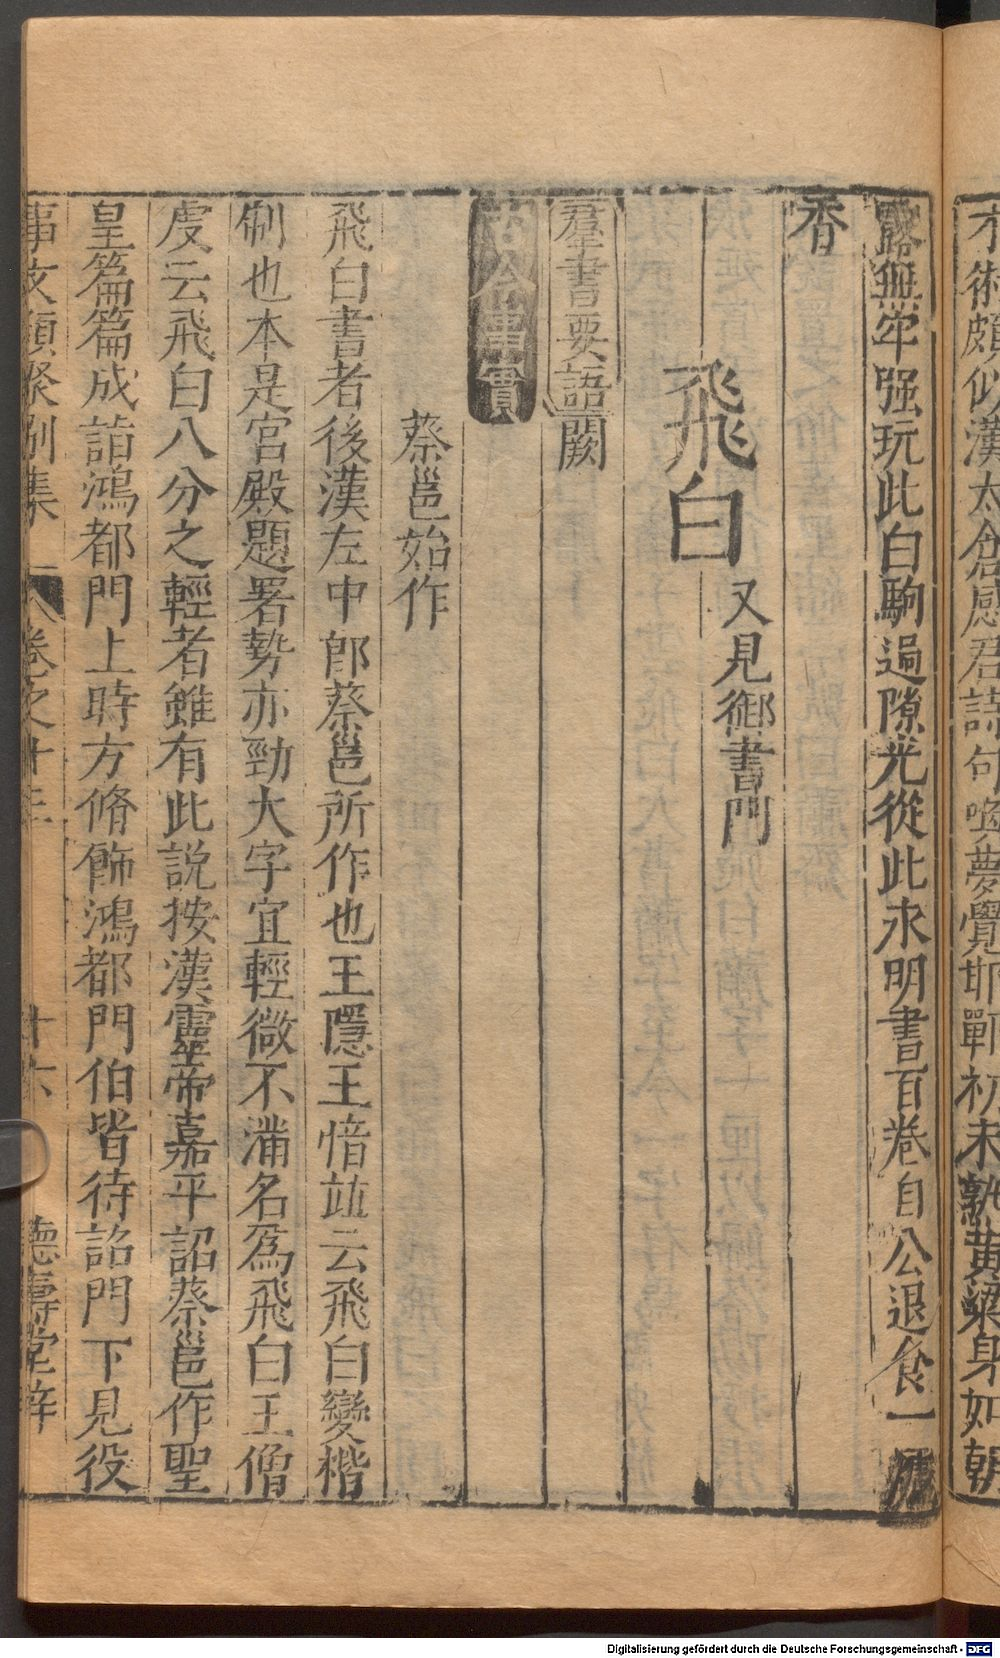 術頗似漢太倉感君詩句喚夢覺邯鄲初未熟黃粱身如朝
露無牢强玩此白駒過隙光從此永明書百卷自公退食一
香
飛白 又見御書門
羣書要語闕
古今事實
蔡邕始作
飛白書者後漢左中郎蔡邕所作也王隱王愔竝云飛白變楷
制也本是宮殿題署勢亦勁大字宜輕微不滿名爲飛白王僧
虔云飛白八分之輕者雖有此説按漢靈帝嘉平詔蔡邕作聖
皇篇篇成詣鴻都門上時方脩飾鴻都門伯皆待詔門下見役
事文類聚別集 卷之十三 十六 德壽堂梓
Digitalisierung gefördert durch die Deutsche Forschungsgemeinschaft - DFG